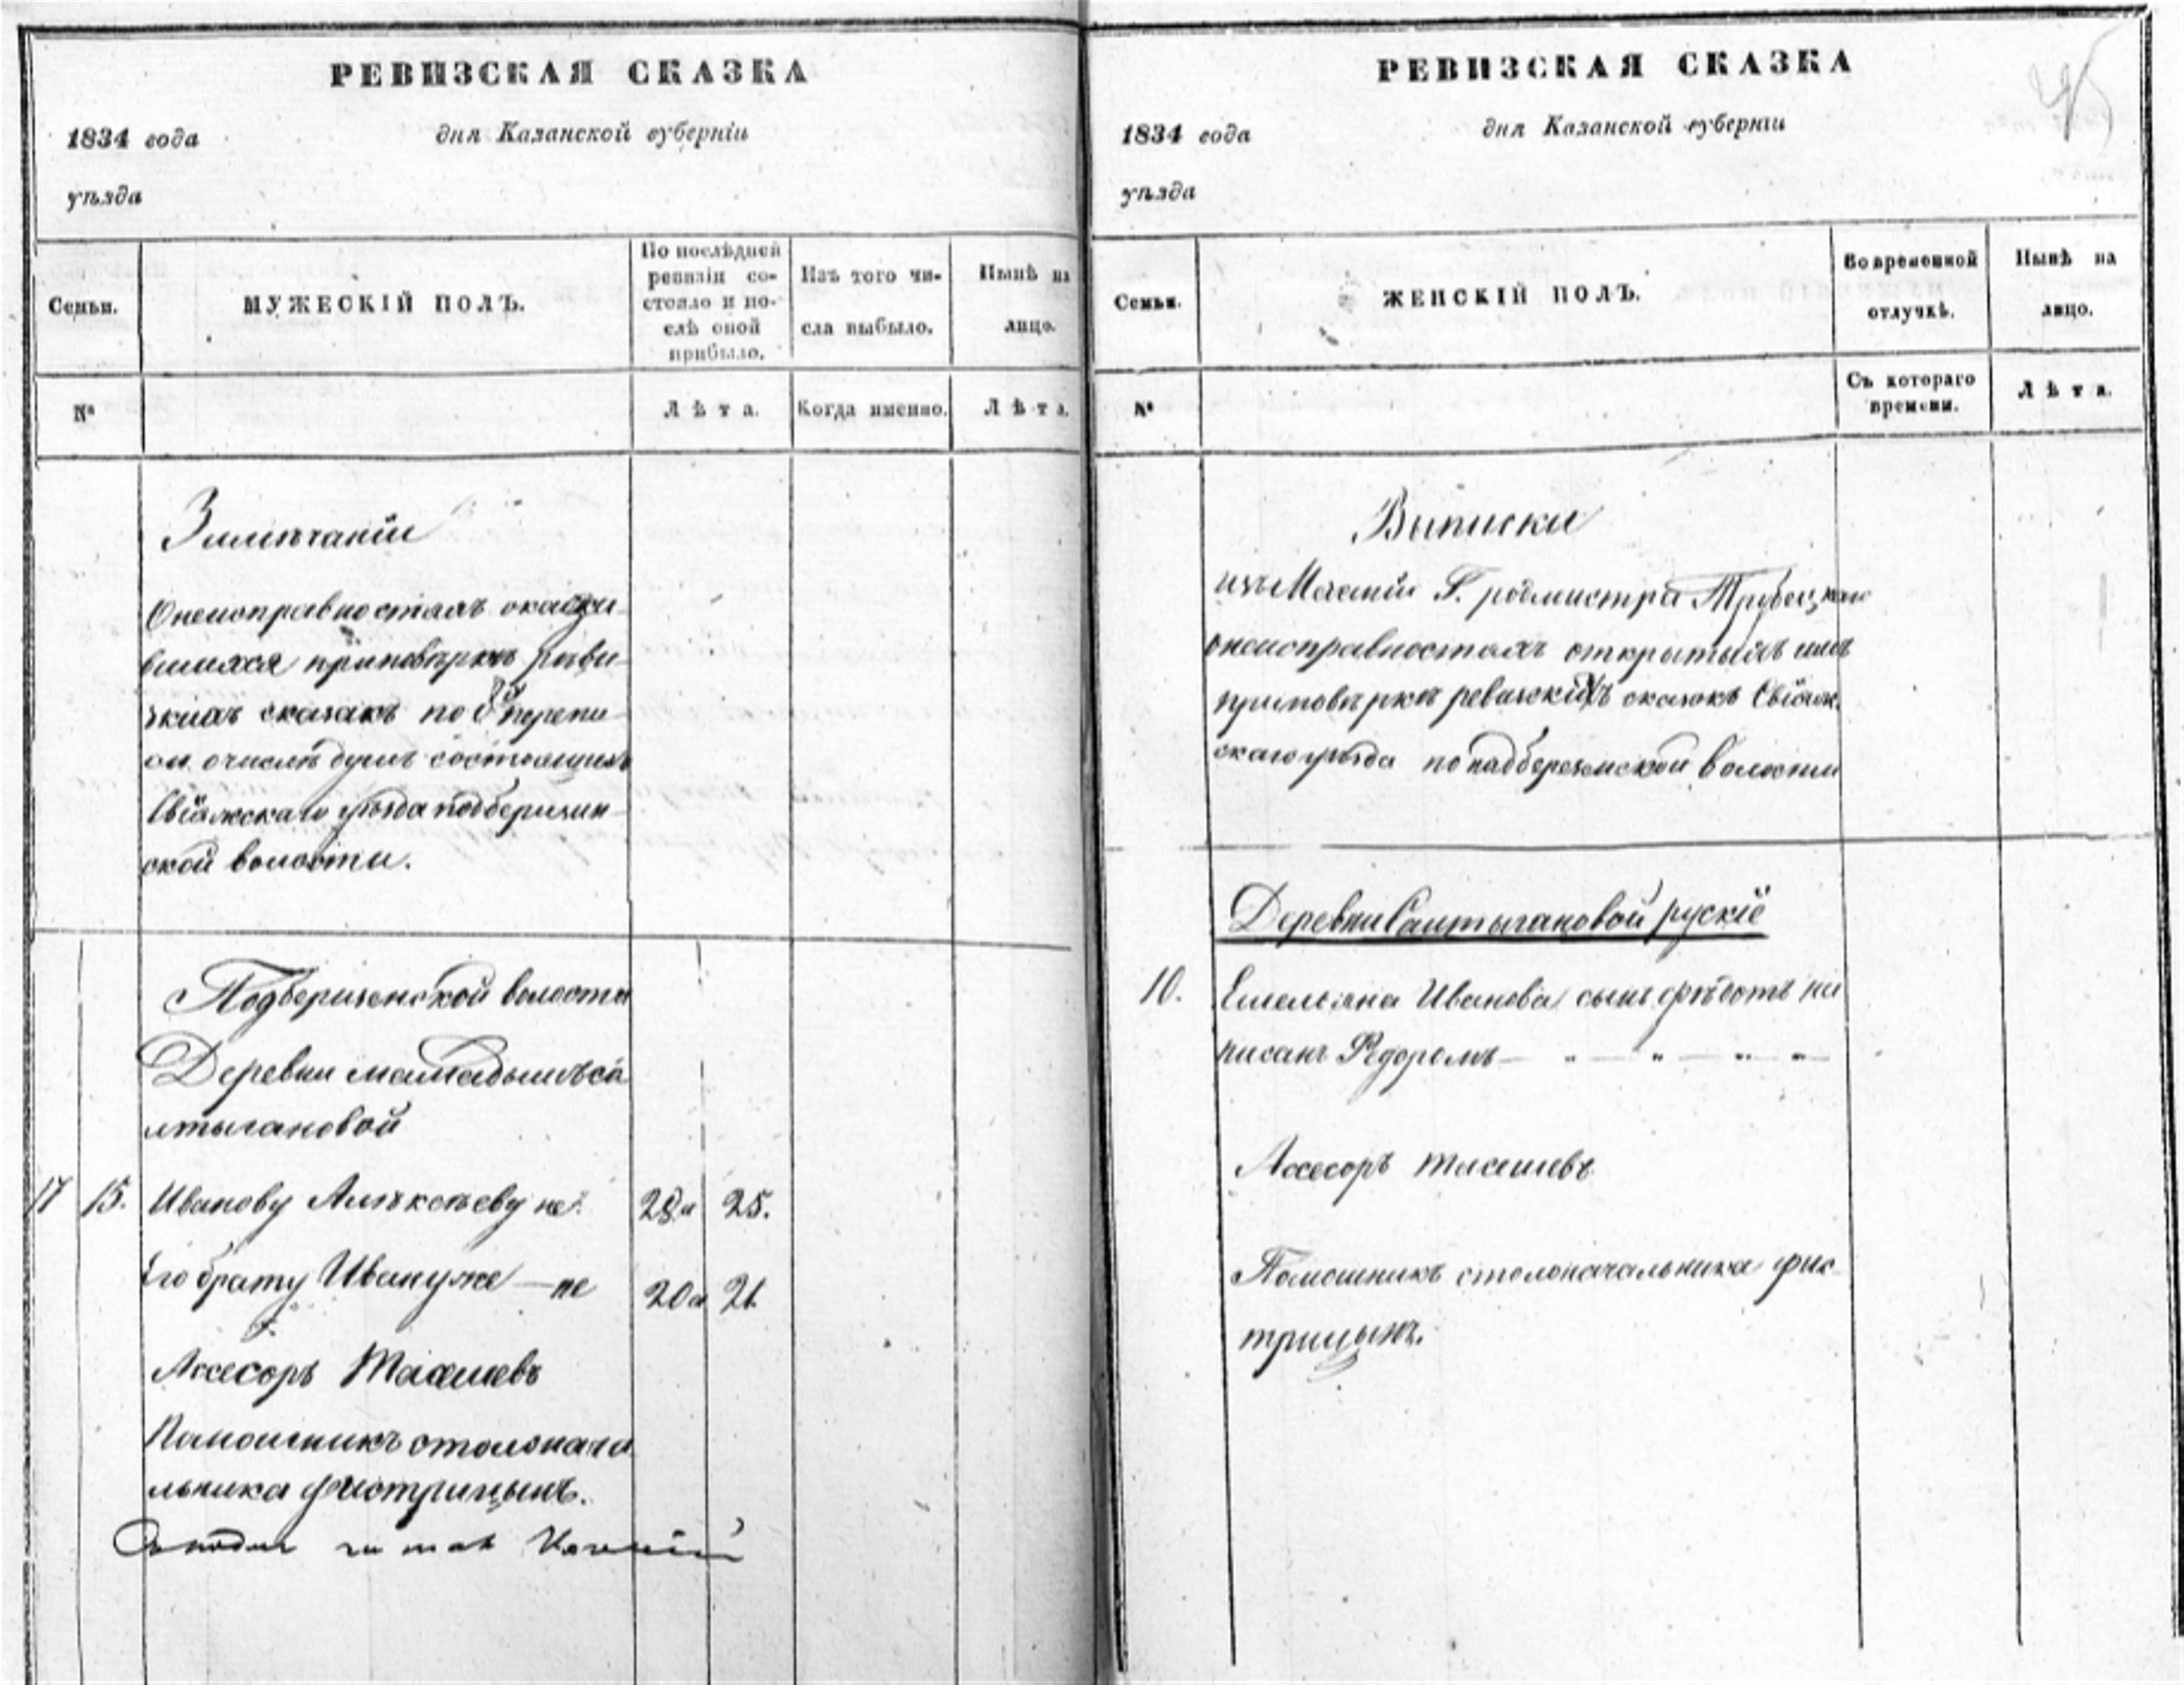 РЕВИЗСКАЯ СКАЗКА
1834 года дня Казанской губерніи
уѣзда
Семьи.
МУЖЕСКІЙ ПОЛЪ.
По послѣдней
ревизіи со-
стояло и по-
слѣ оной
прибыло.
Изъ того чи-
сла выбыло.
Нынѣ на
лицо.
№
Лѣта.
Когда именно.
Лѣта.
Онеисправностяхъ оказы-
вшихся приповѣркѣ реви-
скихъ сказакъ по 8й перепи
си очислѣ душъ состоящихъ
Свіяжскаго уѣзда подберизин-
ской волости.
Подберизенской волости
Деревни мамадышъ са
лтыгановой
17 15. Иванову Алѣксѣеву не 28 и 25.
Его брату Ивану же — не 20 и 21
Ассесоръ
Памошникъ столонача
льника фистрицынъ.
РЕВИЗСКАЯ СКАЗКА
1834 года дня Казанской губерніи
уѣзда
Семьи.
ЖЕНСКІЙ ПОЛЪ.
Во временной
отлучкѣ.
Нынѣ на
лицо.
№
Съ котораго
времени.
Лѣта.
45
Выписки
Г. родмистра Трубецкаго
онеисправностяхъ открытыхъ имъ
приповѣркѣ ревизскихъ сказокъ Свіяж-
скаго уѣзда по надберезенской волости
Деревни Салтыгановой рускіе
10. Емельяна Иванова сынъ фѣдотъ на
писанъ Федоромъ — „ — „ — „ — „ —
Ассесоръ
Памошникъ столоначальника фис
трицынъ.